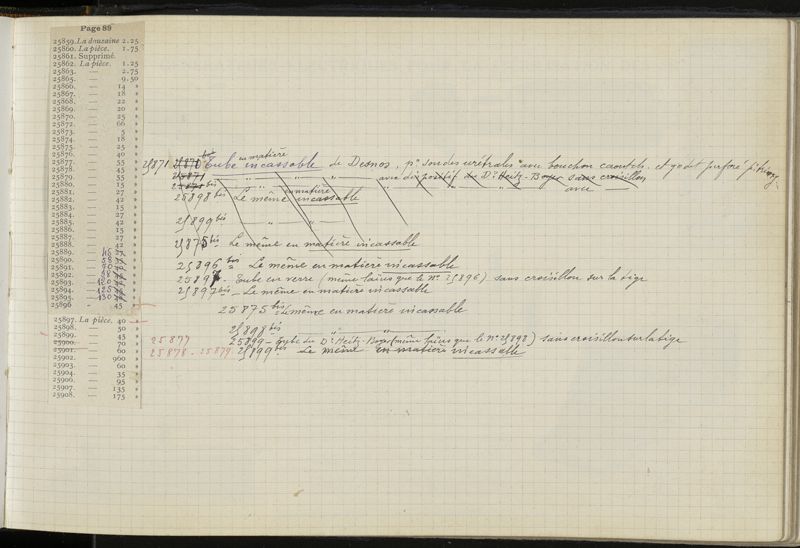 Page 89
25859. La douzaine 2.25
25860. La pièce. 1.75
25861. Supprimé.
25862. La pièce. 1.25
25863. — 2.75
25865. — 9.50
25866. — 14 »
25867. — 18 »
25868. — 22 »
25869. — 20 »
25870. — 25 »
25872. — 66 »
25873. — 5 »
25874. — 18 »
25875. — 25 »
25876. — 40 »
25877. — 55 »
25878. — 45 »
25879. — 55 »
25880. — 15 »
25881. — 27 »
25882. — 42 »
25883. — 15 »
25884. — 27 »
25885. — 42 »
25886. — 15 »
25887. — 27 »
25888. — 42 »
25889. —
25890. —
25891. —
25892. —
25893. —
25894. —
25895. —
25896 - 45
25897. La pièce. 40 »
25898. — 50 »
25899. — 45 »
25900. — 70 »
25901. — 60 »
25902. — 960 »
25903. — 60 »
25904. — 35 »
25906. — 95 »
25907. — 135 »
25908. — 175 »
25871 25870 bis Tube en matière incassable de Desnos, pr sondes urétrales avec bouchon caoutch. et godet perforé
25871 — " — " — " — avec dispositif du Dr Heitz-Boyer sans croisillon
25871 bis — " — " — " — avec —
25898 bis Le même en matière incassable
25899 bis — " —
25875 bis Le même en matière incassable
25896 bis Le même en matière incassable
25897. - Tube en verre (même laius que le No 25896) sans croisillon sur la tige
25897 bis - Le même en matière incassable
25875 bis Le même en matière incassable
25898 bis — " — " —
25877 25899 - Tube du Dr Heitz-Boyer (même laius que le No 25898) sans croisillon sur la tige
25878 - 25879 25899 bis Le même en matière incassable